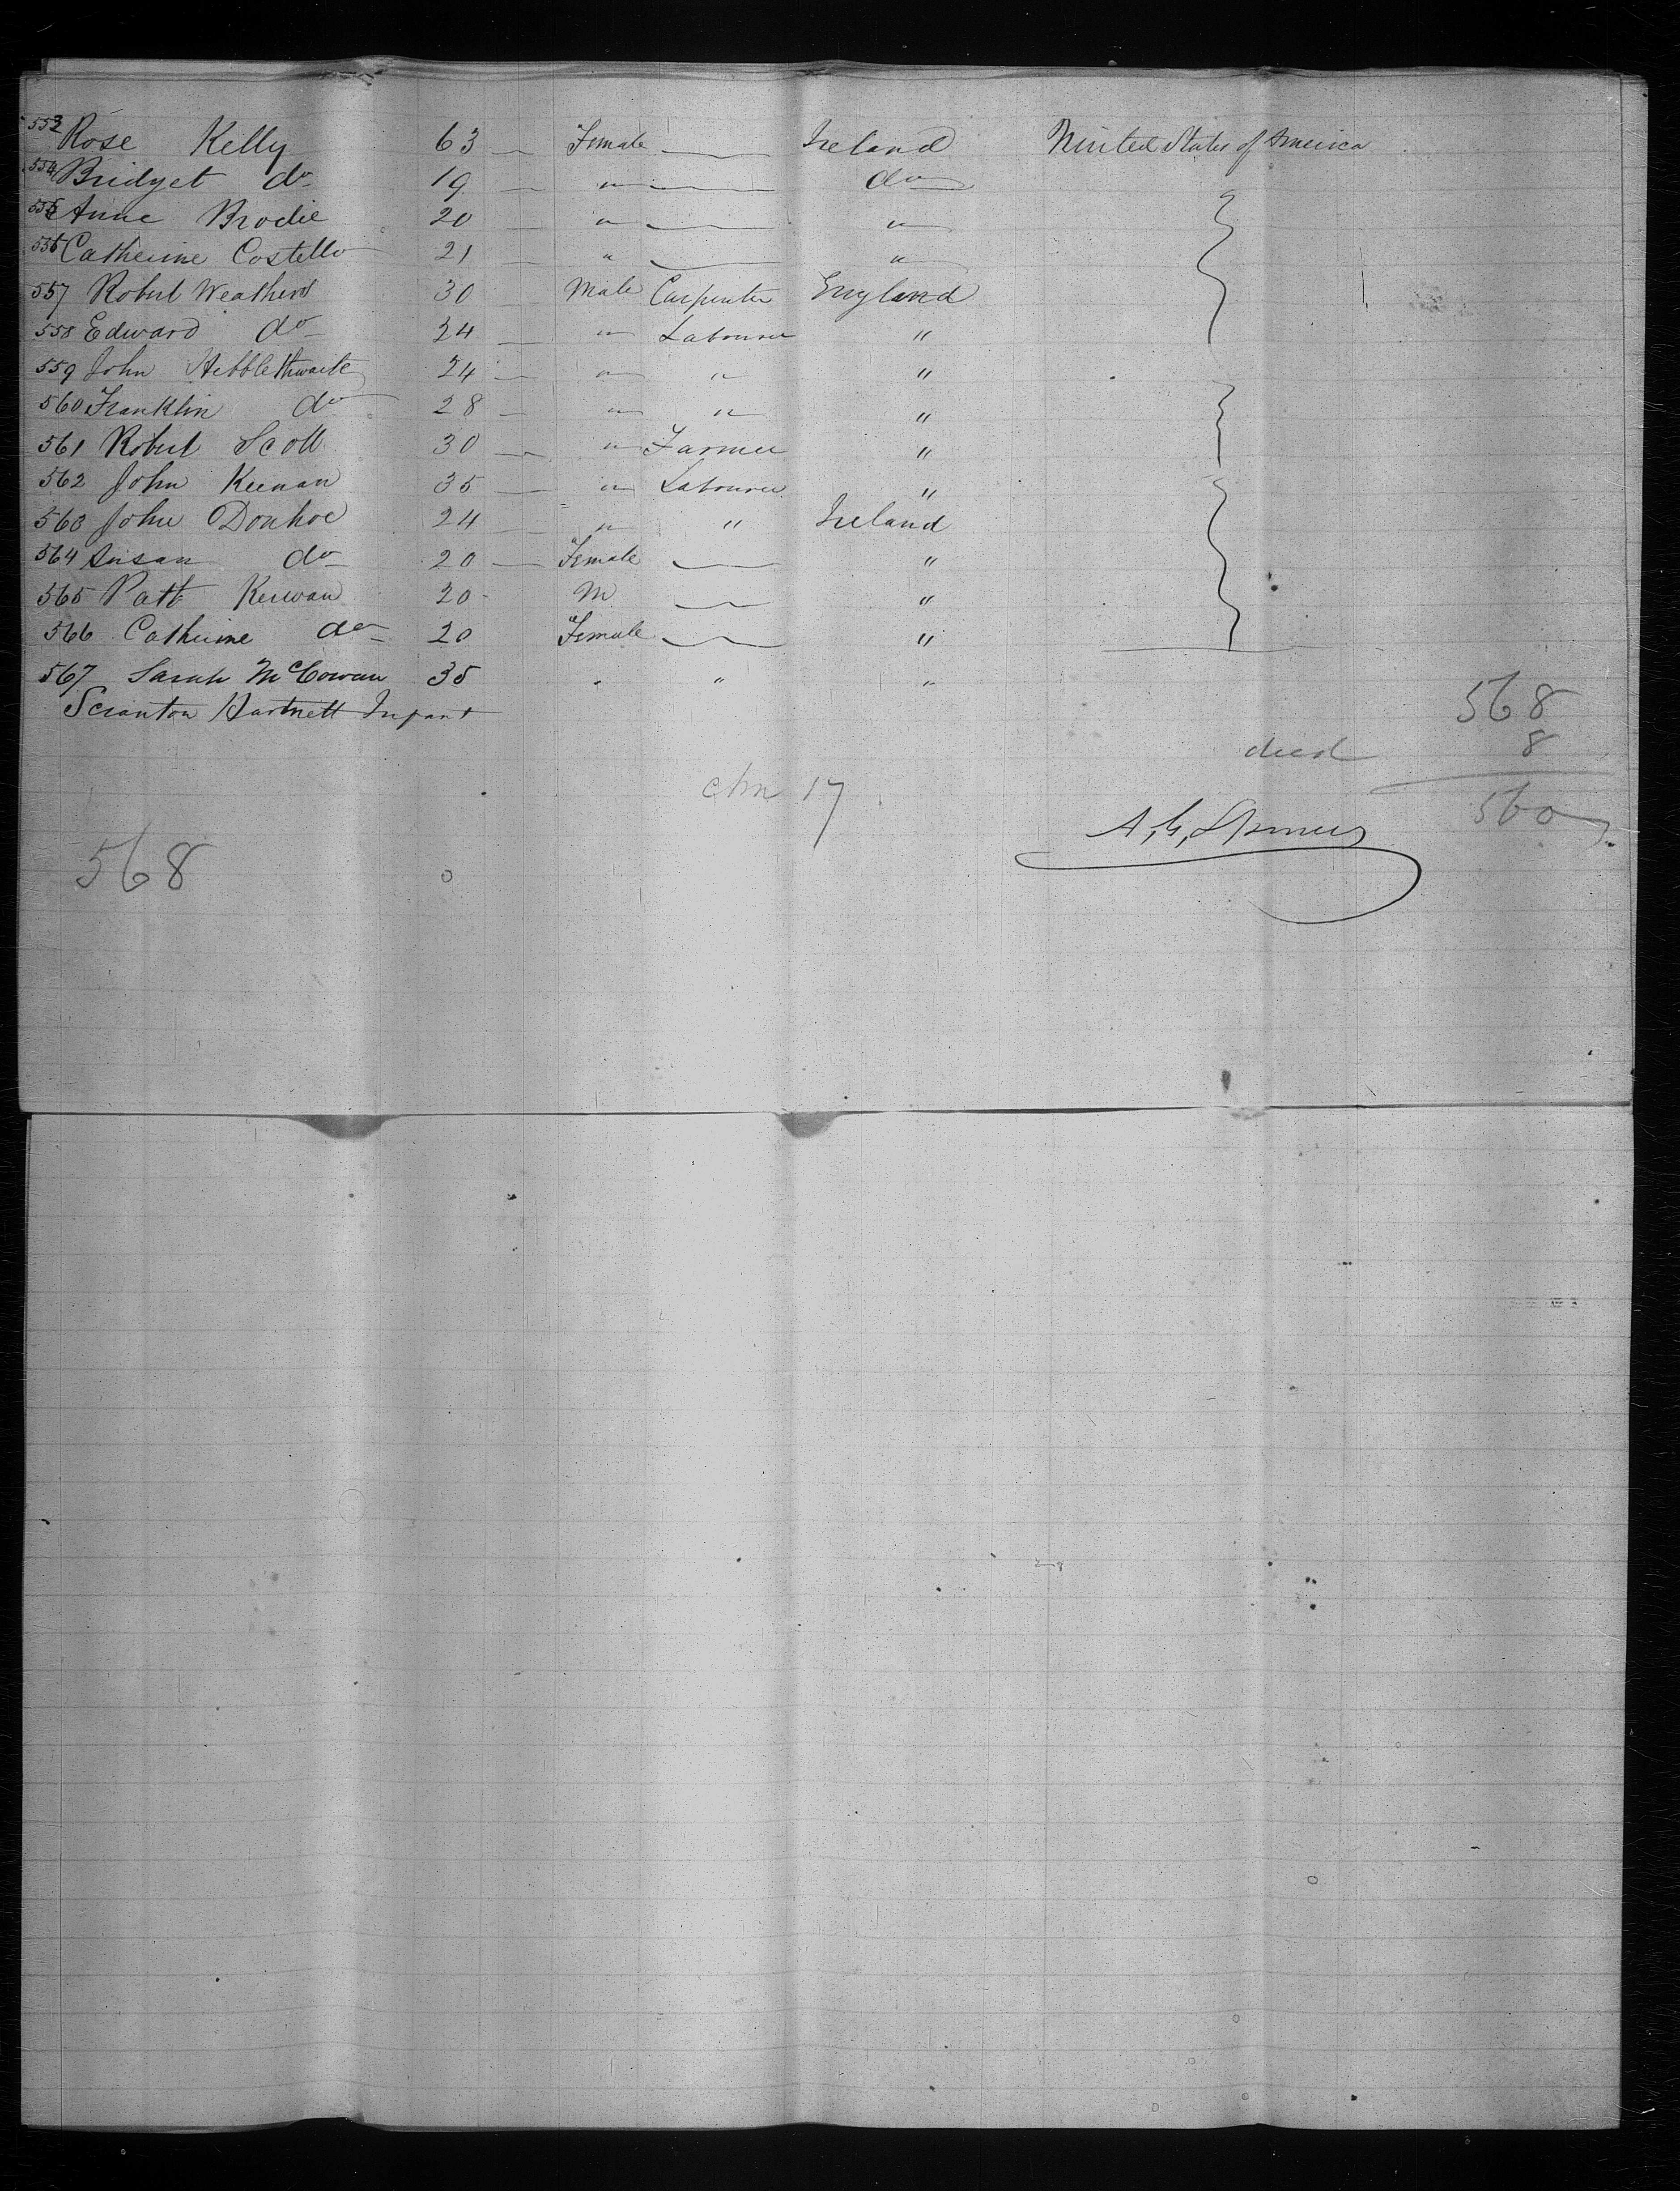 553 Rose Kelly 63 — Female — Ireland United States of America
554 Bridget do 19 — " — do
555 Anne Brodie 20 — " — "
556 Catherine Costello 21 — " — "
557 Robert Weathers 30 Male Carpenter England
558 Edward do 24 — " Labourer "
559 John Hebblethwaite 24 — " " "
560 Franklin do 28 — " " "
561 Robert Scott 30 — " Farmer "
562 John Keenan 35 — " Labourer "
563 John Donhoe 24 — " " Ireland
564 Susan do 20 — Female — "
565 Patt Kerwan 20 - M — "
566 Catherine do 20 Female — "
567 Sarah McCowan 35 " " "
Scranton Hartnett Infant
568
died 8
560
17
568